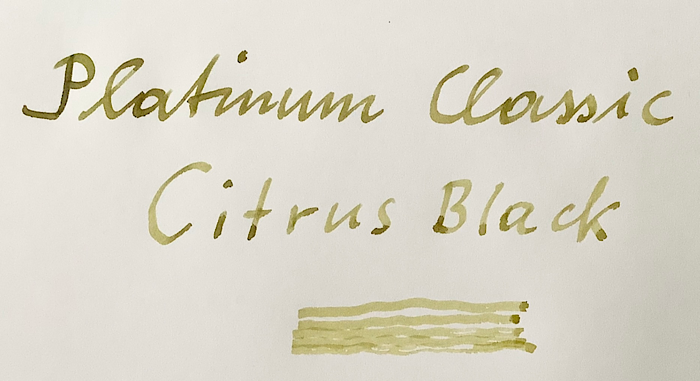 Platinum Classic
Citrus Black